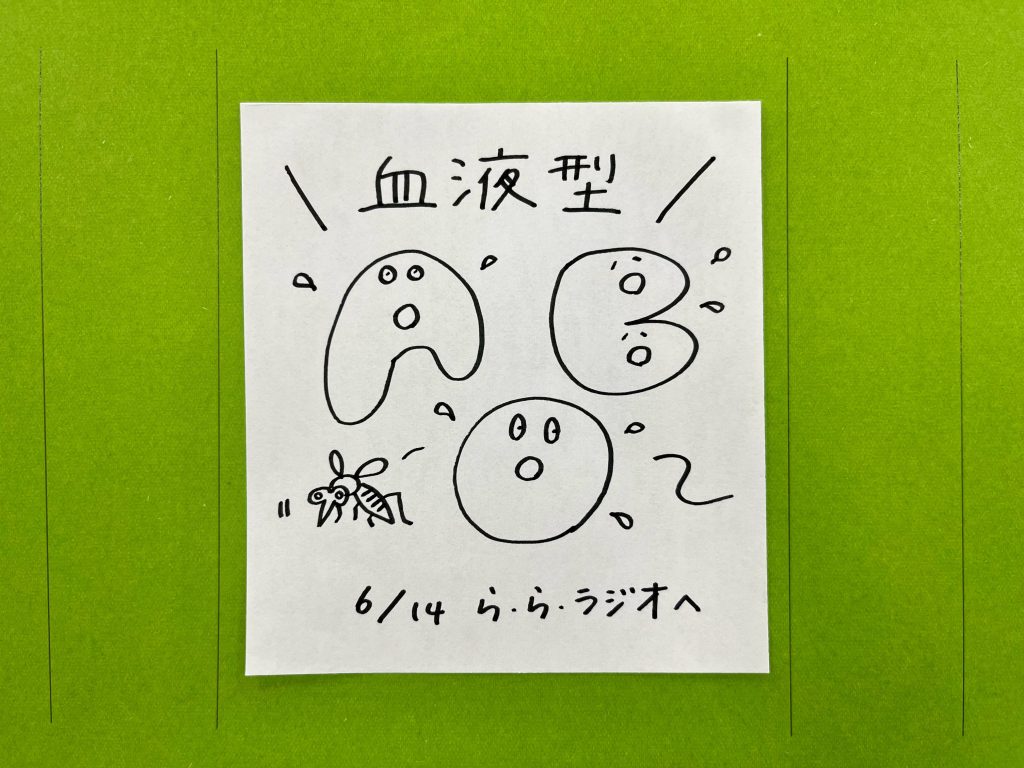 \ 血液型 /
A B
O 〜
6/14 ら・ら・ラジオへ